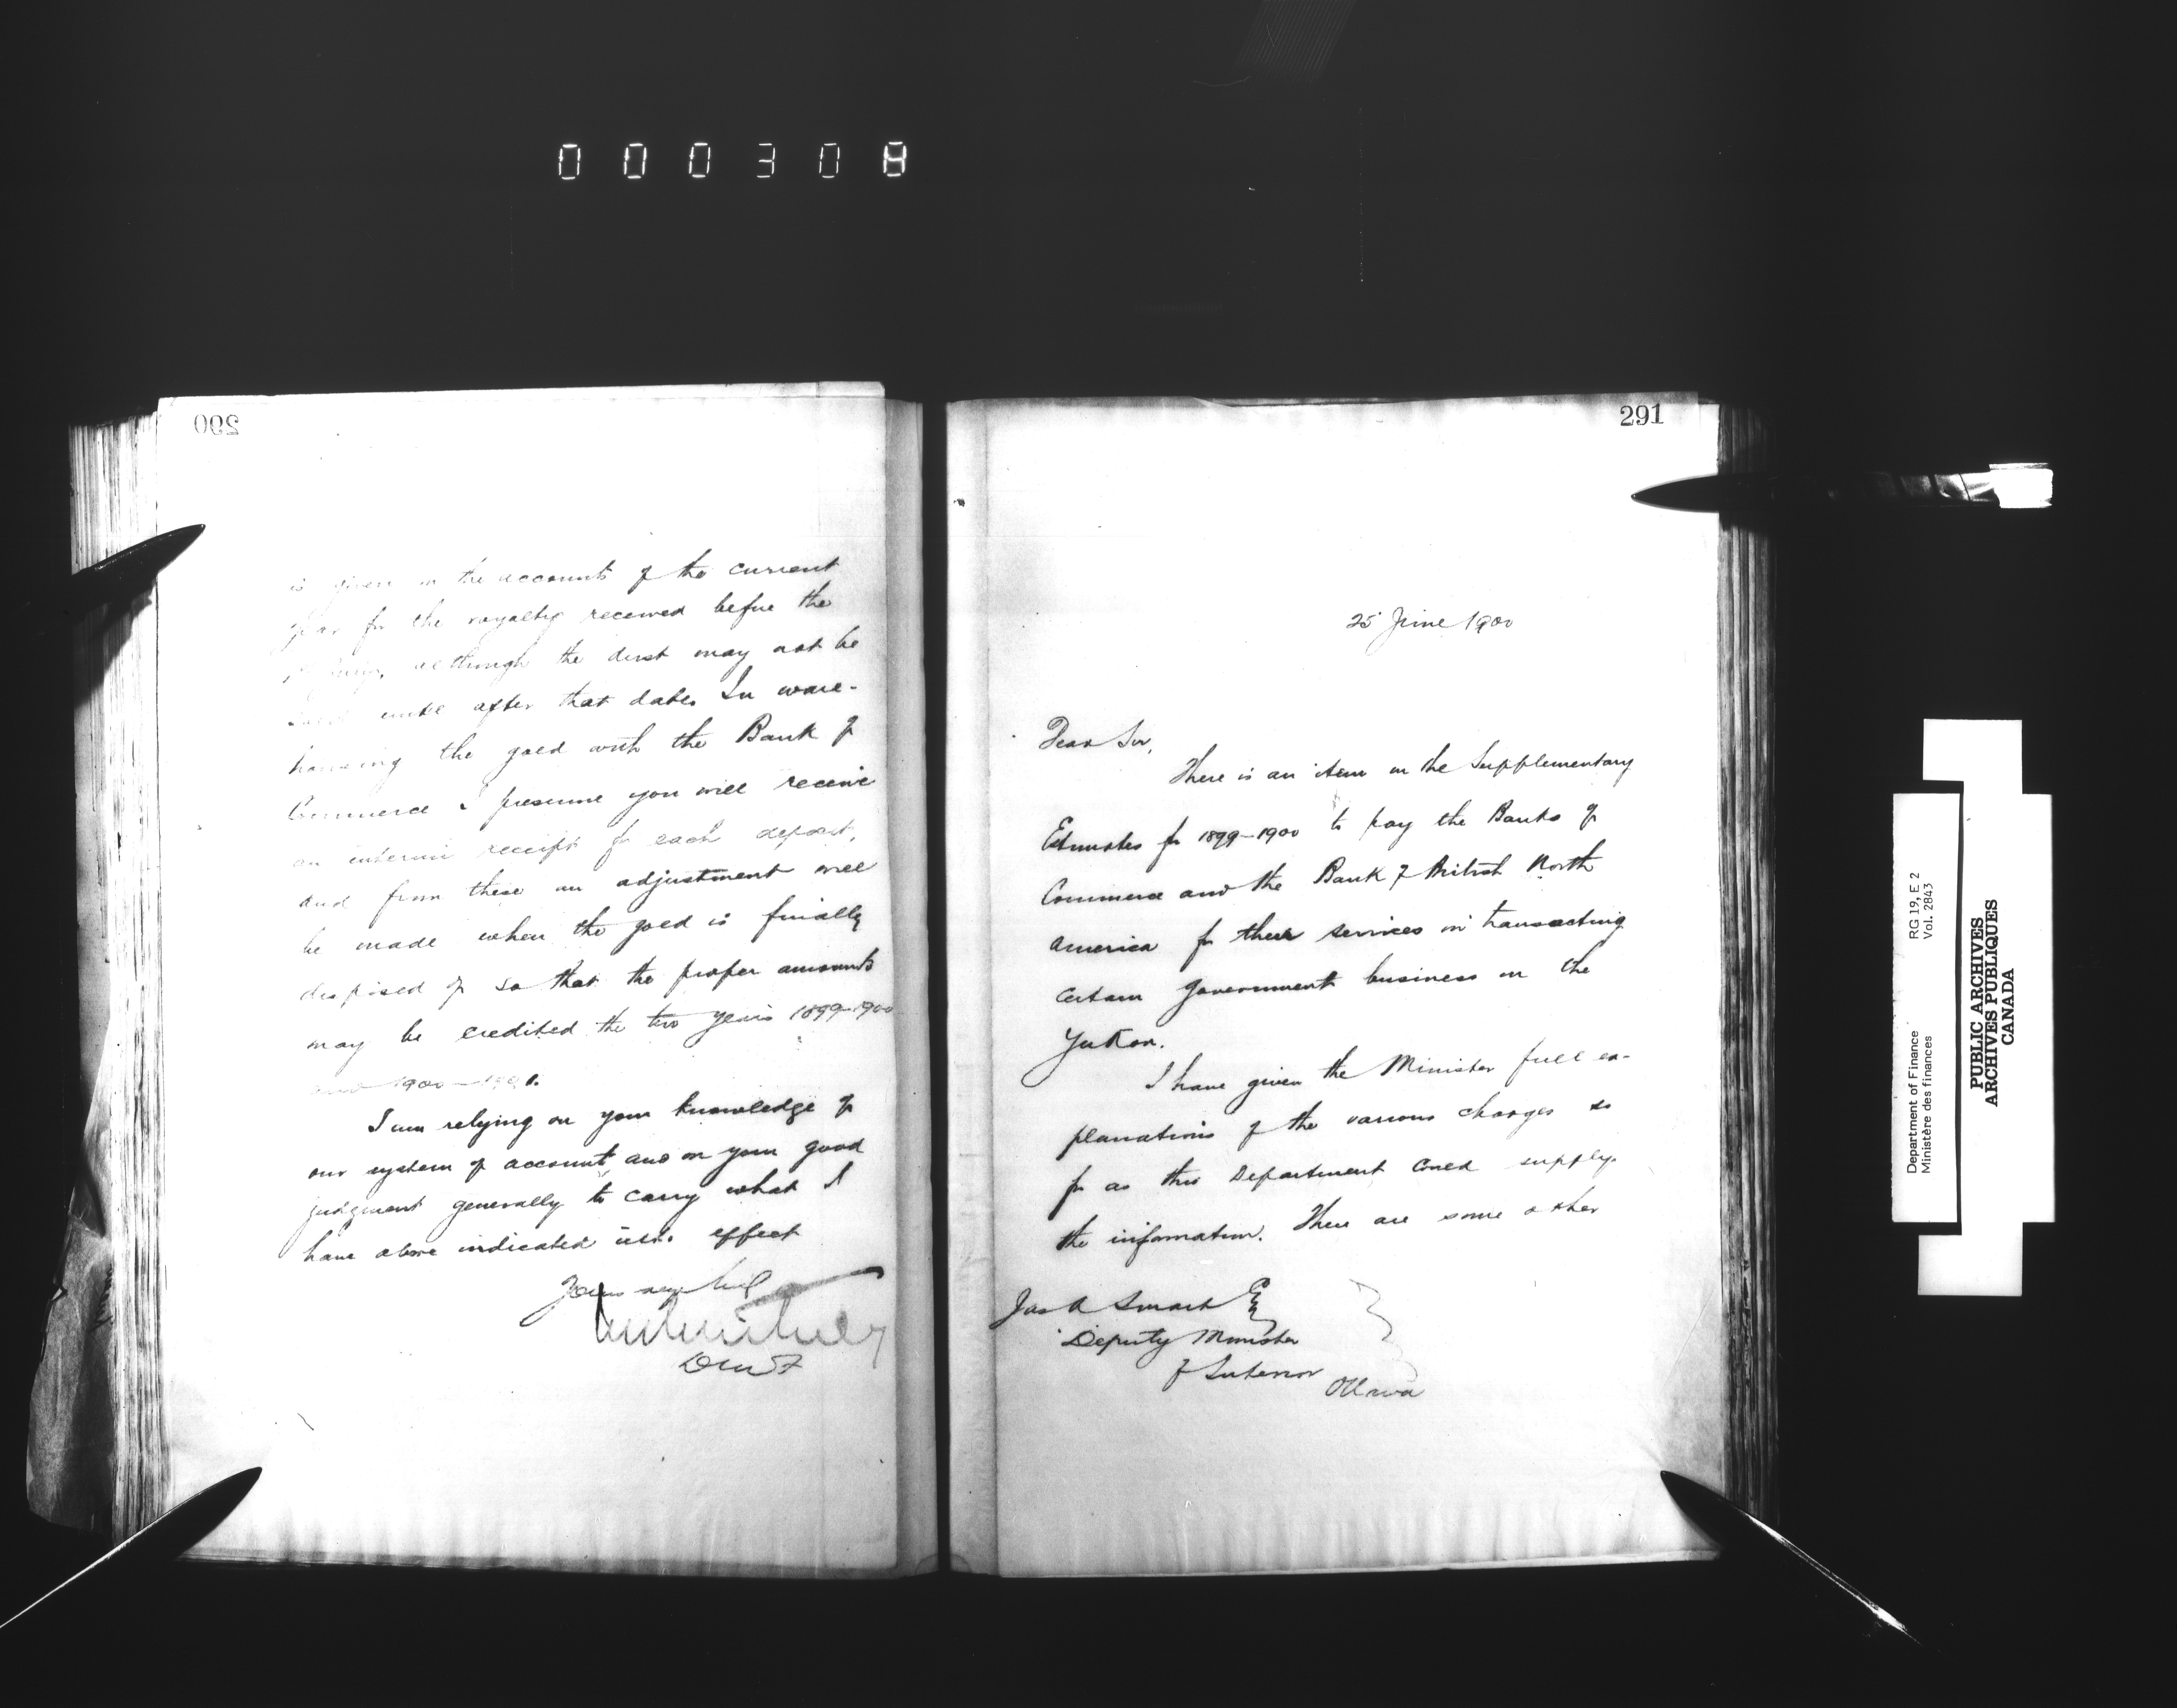 000308
290
is given in the accounts of the current
year for the royalty received before the
although the dust may not be
sold until after that date. In ware-
housing the gold with the Bank of
Commerce I presume you will receive
an interim receipt for each deposit,
and from these an adjustment will
be made when the gold is finally
disposed of so that the proper amounts
may be credited the two years 1899-1900
and 1900-1901.
I am relying on your knowledge of
our system of account and on your good
judgment generally to carry what I
have above indicated into effect
Yours very truly
DMF
291
25 June 1900
Dear Sir,
There is an item in the Supplementary
Estimates for 1899-1900 to pay the Banks of
Commerce and the Bank of British North
America for their services in transacting
certain Government business in the
Yukon.
I have given the Minister full ex-
planations of the various charges so
far as this Department could supply
the information. There are some other
Jas A Smart Esq
Deputy Minister
of Interior
Ottawa
Department of Finance
Ministère des finances
RG 19, E 2
Vol. 2843
PUBLIC ARCHIVES
ARCHIVES PUBLIQUES
CANADA